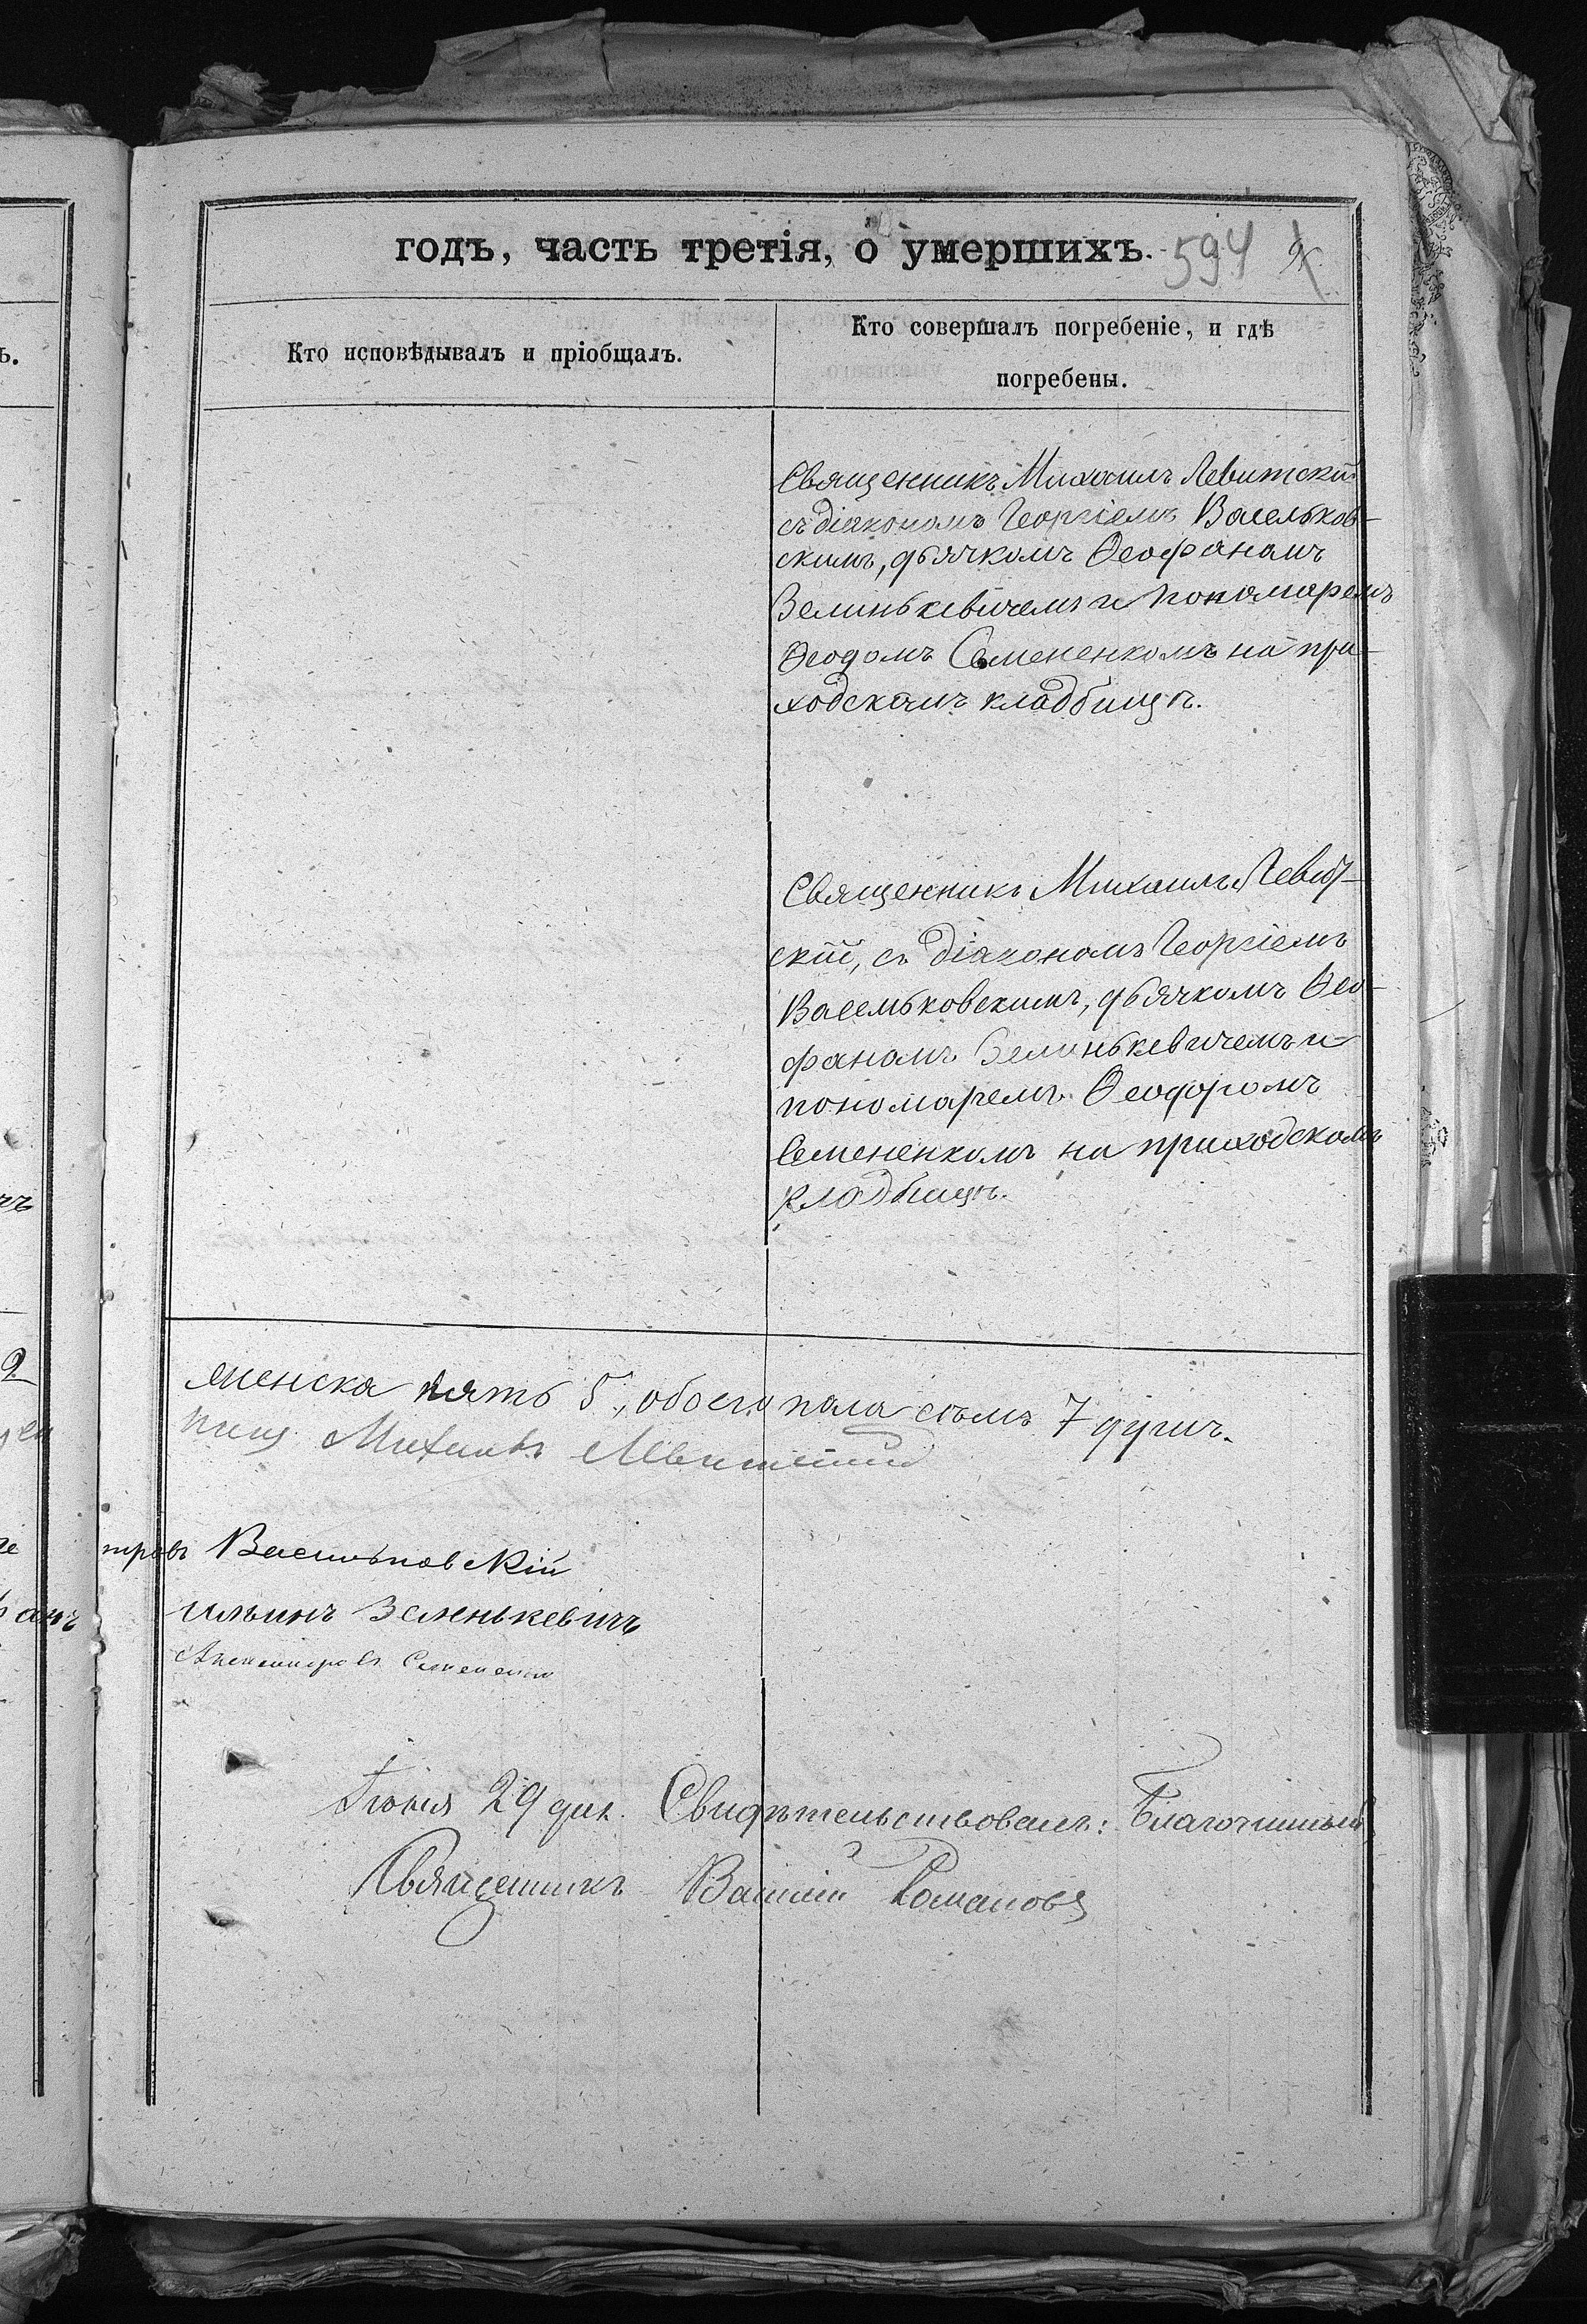 годъ, часть третія, о умершихъ. 594
Кто исповѣдывалъ и пріобщалъ.
Кто совершалъ погребеніе, и гдѣ
погребены.
Священникъ Михаилъ Левитскій
съ діакономъ Георгіемъ Васельков-
скимъ, дьячкомъ Ѳеофаномъ
Зелинькевичемъ и пономаремъ
Ѳеодомъ Семененкомъ на при-
ходскомъ кладбищѣ.
Священникъ Михаилъ Левит-
скій, съ діакономъ Георгіемъ
Васельковскимъ, дьячкомъ Ѳео-
фаномъ Зелинькевичемъ и
пономаремъ Ѳеодоромъ
Семененкомъ на приходскомъ
кладбищѣ.
женска пять 5, обоего пола семь 7 душъ.
Михаилъ Левитскій
тровъ Васильковскій
ильинъ Зеленькевичъ
Александровъ Семененко
Іюня 29 дня. Свидѣтельствовалъ: Благочинный
Священникъ Василій Романовъ